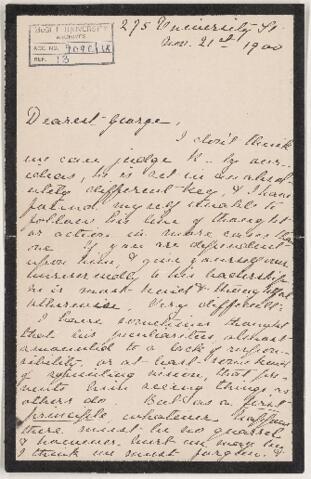 McGILL UNIVERSITY
ARCHIVES
ACC. NO.
REF. 13
275 University St.
Nov. 21st 1900
Dearest George,
I don't think
we can judge H— by our-
selves, he is set in an absol-
utely different key, & I have
found myself unable to
follow his line of thought
or action in more cases than
one. If you are dependent
upon him, & give yourself over
unreservedly to his leadership
he is most kind & thoughtful
otherwise, Very different.
I have sometimes thought
that his peculiarities almost
amounted to a lack of respon-
sibility, or at least some kind
of squinting vision, that pre-
vents him seeing things as
others do. But as a first
principle, whatever happens
there must be no quarrel
& however hurt we may be
I think we must forgive &